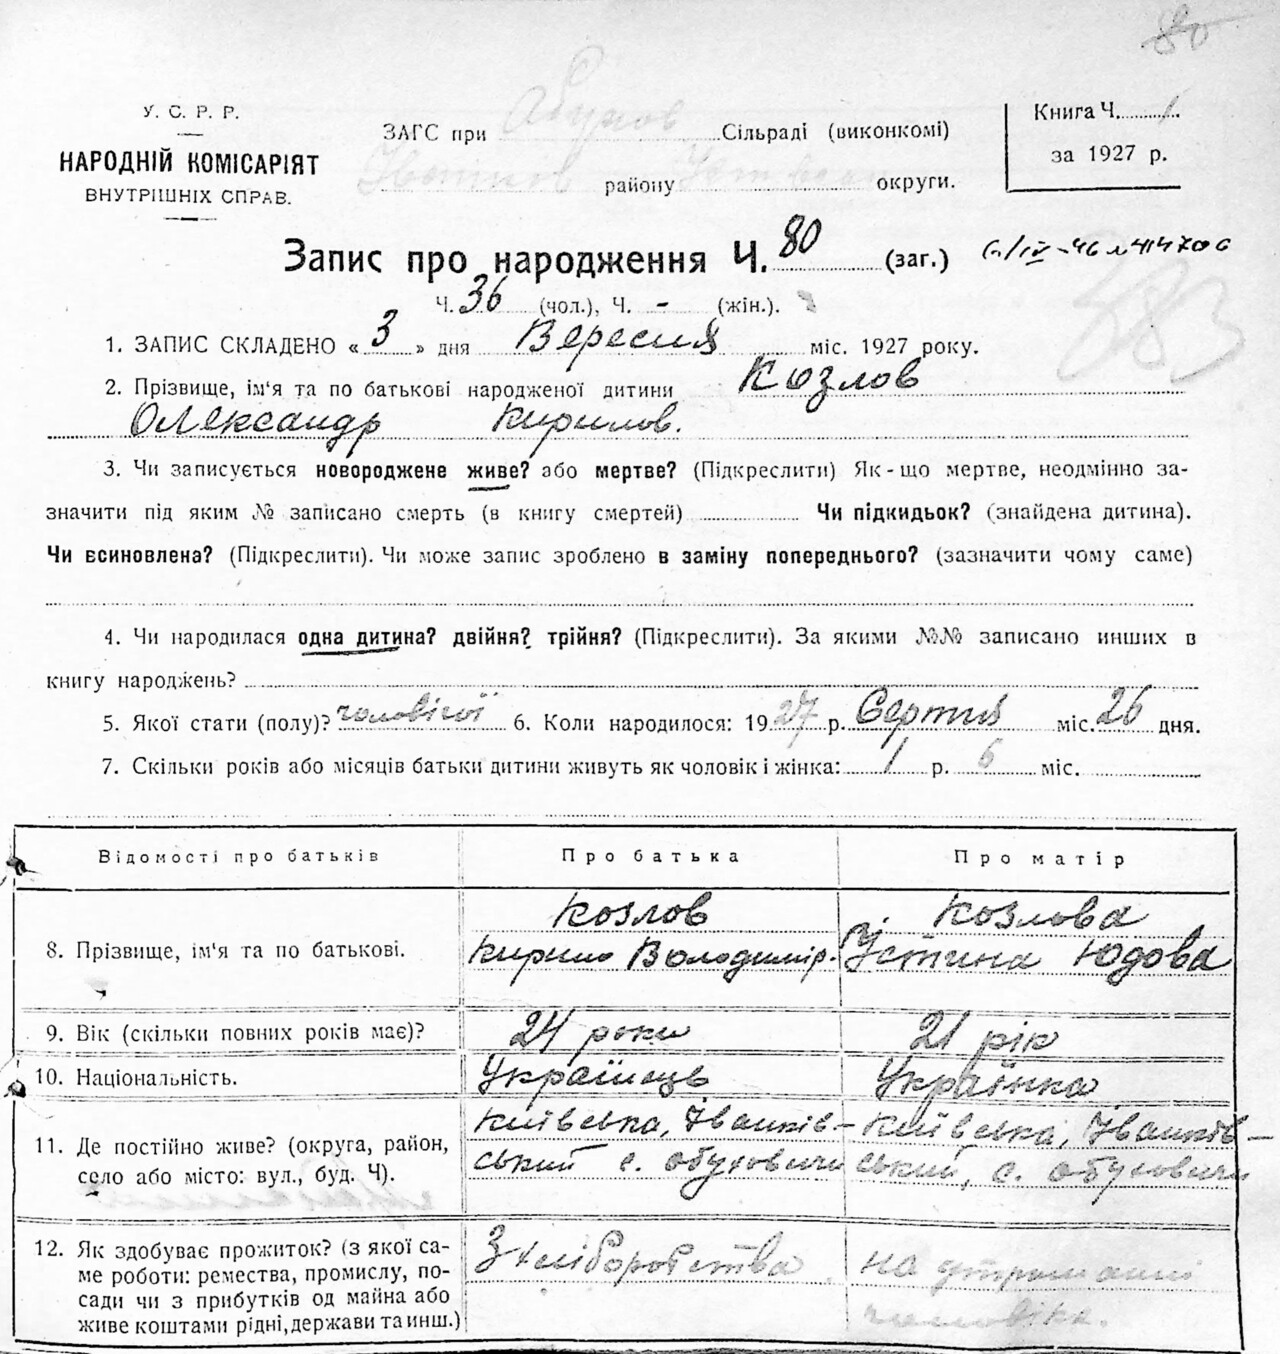 80
У. С. Р. Р.
НАРОДНІЙ КОМІСАРІЯТ
ВНУТРІШНІХ СПРАВ.
ЗАГС при Сільраді (виконкомі)
району округи.
Книга Ч. 1
за 1927 р.
Запис про народження Ч. 80 (заг.)
Ч. 36 (чол.), Ч. - (жін.).
383
1. ЗАПИС СКЛАДЕНО « 3 » дня Вересня міс. 1927 року.
2. Прізвище, ім'я та по батькові народженої дитини Козлов
Олександр Кирилов.
3. Чи записується новороджене живе? або мертве? (Підкреслити) Як-що мертве, неодмінно за-
значити під яким № записано смерть (в книгу смертей) Чи підкидьок? (знайдена дитина).
Чи всиновлена? (Підкреслити). Чи може запис зроблено в заміну попереднього? (зазначити чому саме)
4. Чи народилася одна дитина? двійня? трійня? (Підкреслити). За якими №№ записано инших в
книгу народжень?
5. Якої стати (полу)? чоловічої 6. Коли народилося: 1927 р. Серпня міс. 26 дня.
7. Скільки років або місяців батьки дитини живуть як чоловік і жінка: 1 р. 6 міс.
Відомості про батьків Про батька Про матір
8. Прізвище, ім'я та по батькові.
Козлов
Кирило Володимір.
Козлова
Устина Юдова
9. Вік (скільки повних років має)? 24 роки 21 рік
10. Національність. Українець Українка
11. Де постійно живе? (округа, район,
село або місто: вул., буд. Ч).
Київська, Іванків-
ський с. обуховичи
Київська, Іванків-
ський, с. обуховичи
12. Як здобуває прожиток? (з якої са-
ме роботи: ремества, промислу, по-
сади чи з прибутків од майна або
живе коштами рідні, держави та инш.)
З хліборобства
на утриманні
чоловіка.